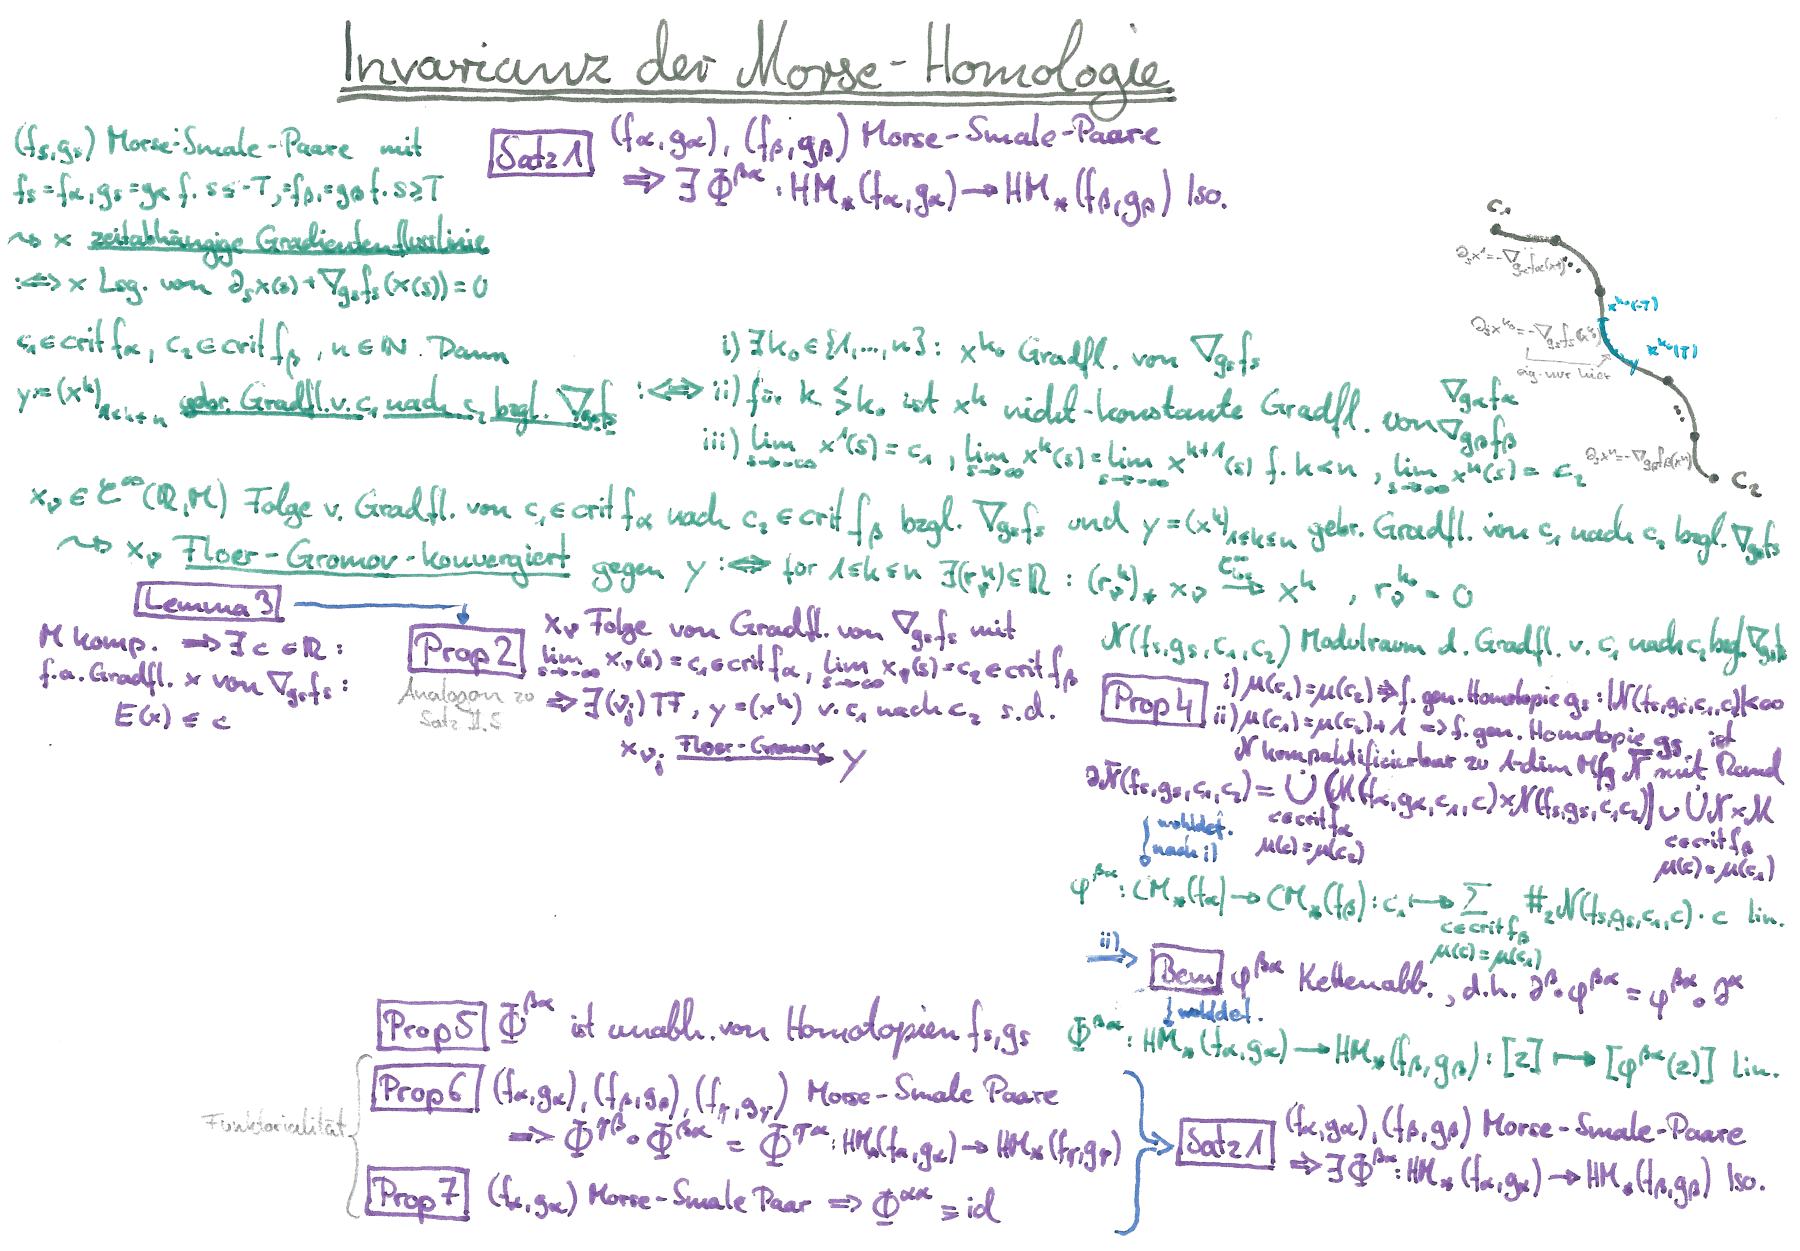 Invarianz der Morse-Homologie
(fs,gs) Morse-Smale-Paare mit
fs=fα,gs=gα f. s≤-T,=fβ,=gβ f. s≥T
⇝ x zeitabhängige Gradientenflusslinie
:⇔ x Lsg. von ∂ₛx(s)+∇_{gs}fs(x(s))=0
Satz 1
(fα,gα), (fβ,gβ) Morse-Smale-Paare
⇒ ∃ Φ^{βα} : HM_*(fα,gα) → HM_*(fβ,gβ) Iso.
c₁∈crit fα, c₂∈crit fβ, n∈ℕ. Dann
y=(x^k)_{1≤k≤n} gebr. Gradfl. v. c₁ nach c₂ bzgl. ∇_{gs}fs :⇔
i) ∃k₀∈{1,...,n}: x^{k₀} Gradfl. von ∇_{gs}fs
ii) für k ≶ k₀ ist x^k nicht-konstante Gradfl. von ∇_{gα}fα ∇_{gβ}fβ
iii) lim_{s→-∞} x¹(s) = c₁, lim_{s→∞} x^k(s) = lim_{s→-∞} x^{k+1}(s) f. k<n, lim_{s→∞} x^n(s) = c₂
c₁
∂ₛx¹=-∇_{gα}fα(x¹)
x^{k₀}(-T)
∂ₛx^{k₀}=-∇_{gs}fs(x^{k₀})
x^{k₀}(T)
eig. nur hier
∂ₛx^n=-∇_{gβ}fβ(x^n)
c₂
x_ν ∈ C^∞(ℝ,M) Folge v. Gradfl. von c₁∈crit fα nach c₂∈crit fβ bzgl. ∇_{gs}fs und y=(x^k)_{1≤k≤n} gebr. Gradfl. von c₁ nach c₂ bzgl. ∇_{gs}fs
⇝ x_ν Floer-Gromov-konvergiert gegen y :⇔ for 1≤k≤n ∃(r_ν^k)⊆ℝ : (r_ν^k)_* x_ν →^{C^∞_{loc}} x^k, r_ν^{k₀} = 0
Lemma 3
M komp. ⇒ ∃ c ∈ ℝ :
f.a. Gradfl. x von ∇_{gs}fs :
E(x) ≤ c
Prop 2
Analogon zu
Satz II.5
x_ν Folge von Gradfl. von ∇_{gs}fs mit
lim_{s→-∞} x_ν(s)=c₁∈crit fα, lim_{s→∞} x_ν(s)=c₂∈crit fβ
⇒ ∃(ν_j) TF, y=(x^k) v. c₁ nach c₂ s.d.
x_{ν_j} →^{Floer-Gromov} y
N(fs,gs,c₁,c₂) Modulraum d. Gradfl. v. c₁ nach c₂ bzgl. ∇_{gs}fs
Prop 4
i) μ(c₁)=μ(c₂) ⇒ f. gen. Homotopie gs : |N(fs,gs,c₁,c₂)|<∞
ii) μ(c₁)=μ(c₂)+1 ⇒ f. gen. Homotopie gs ist
N kompaktifizierbar zu 1-dim Mfg N̄ mit Rand
∂N̄(fs,gs,c₁,c₂) = ⋃̇ (M(fα,gα,c₁,c)×N(fs,gs,c,c₂)) ∪ ⋃̇ N×M
c∈crit fα
μ(c)=μ(c₂)
c∈crit fβ
μ(c)=μ(c₁)
wohldef.
nach i)
φ^{βα} : CM_*(fα) → CM_*(fβ) : c₁ ↦ Σ #₂N(fs,gs,c₁,c)·c lin.
c∈crit fβ
μ(c)=μ(c₁)
ii)
Bem
φ^{βα} Kettenabb., d.h. ∂^β∘φ^{βα} = φ^{βα}∘∂^α
wohldef.
Φ^{βα} : HM_*(fα,gα) → HM_*(fβ,gβ) : [z] ↦ [φ^{βα}(z)] Lin.
Prop 5
Φ^{βα} ist unabh. von Homotopien fs,gs
Funktorialität
Prop 6
(fα,gα), (fβ,gβ), (fγ,gγ) Morse-Smale Paare
⇒ Φ^{γβ}∘Φ^{βα} = Φ^{γα} : HM_*(fα,gα) → HM_*(fγ,gγ)
Prop 7
(fα,gα) Morse-Smale Paar ⇒ Φ^{αα} = id
Satz 1
(fα,gα), (fβ,gβ) Morse-Smale-Paare
⇒ ∃ Φ^{βα} : HM_*(fα,gα) → HM_*(fβ,gβ) Iso.